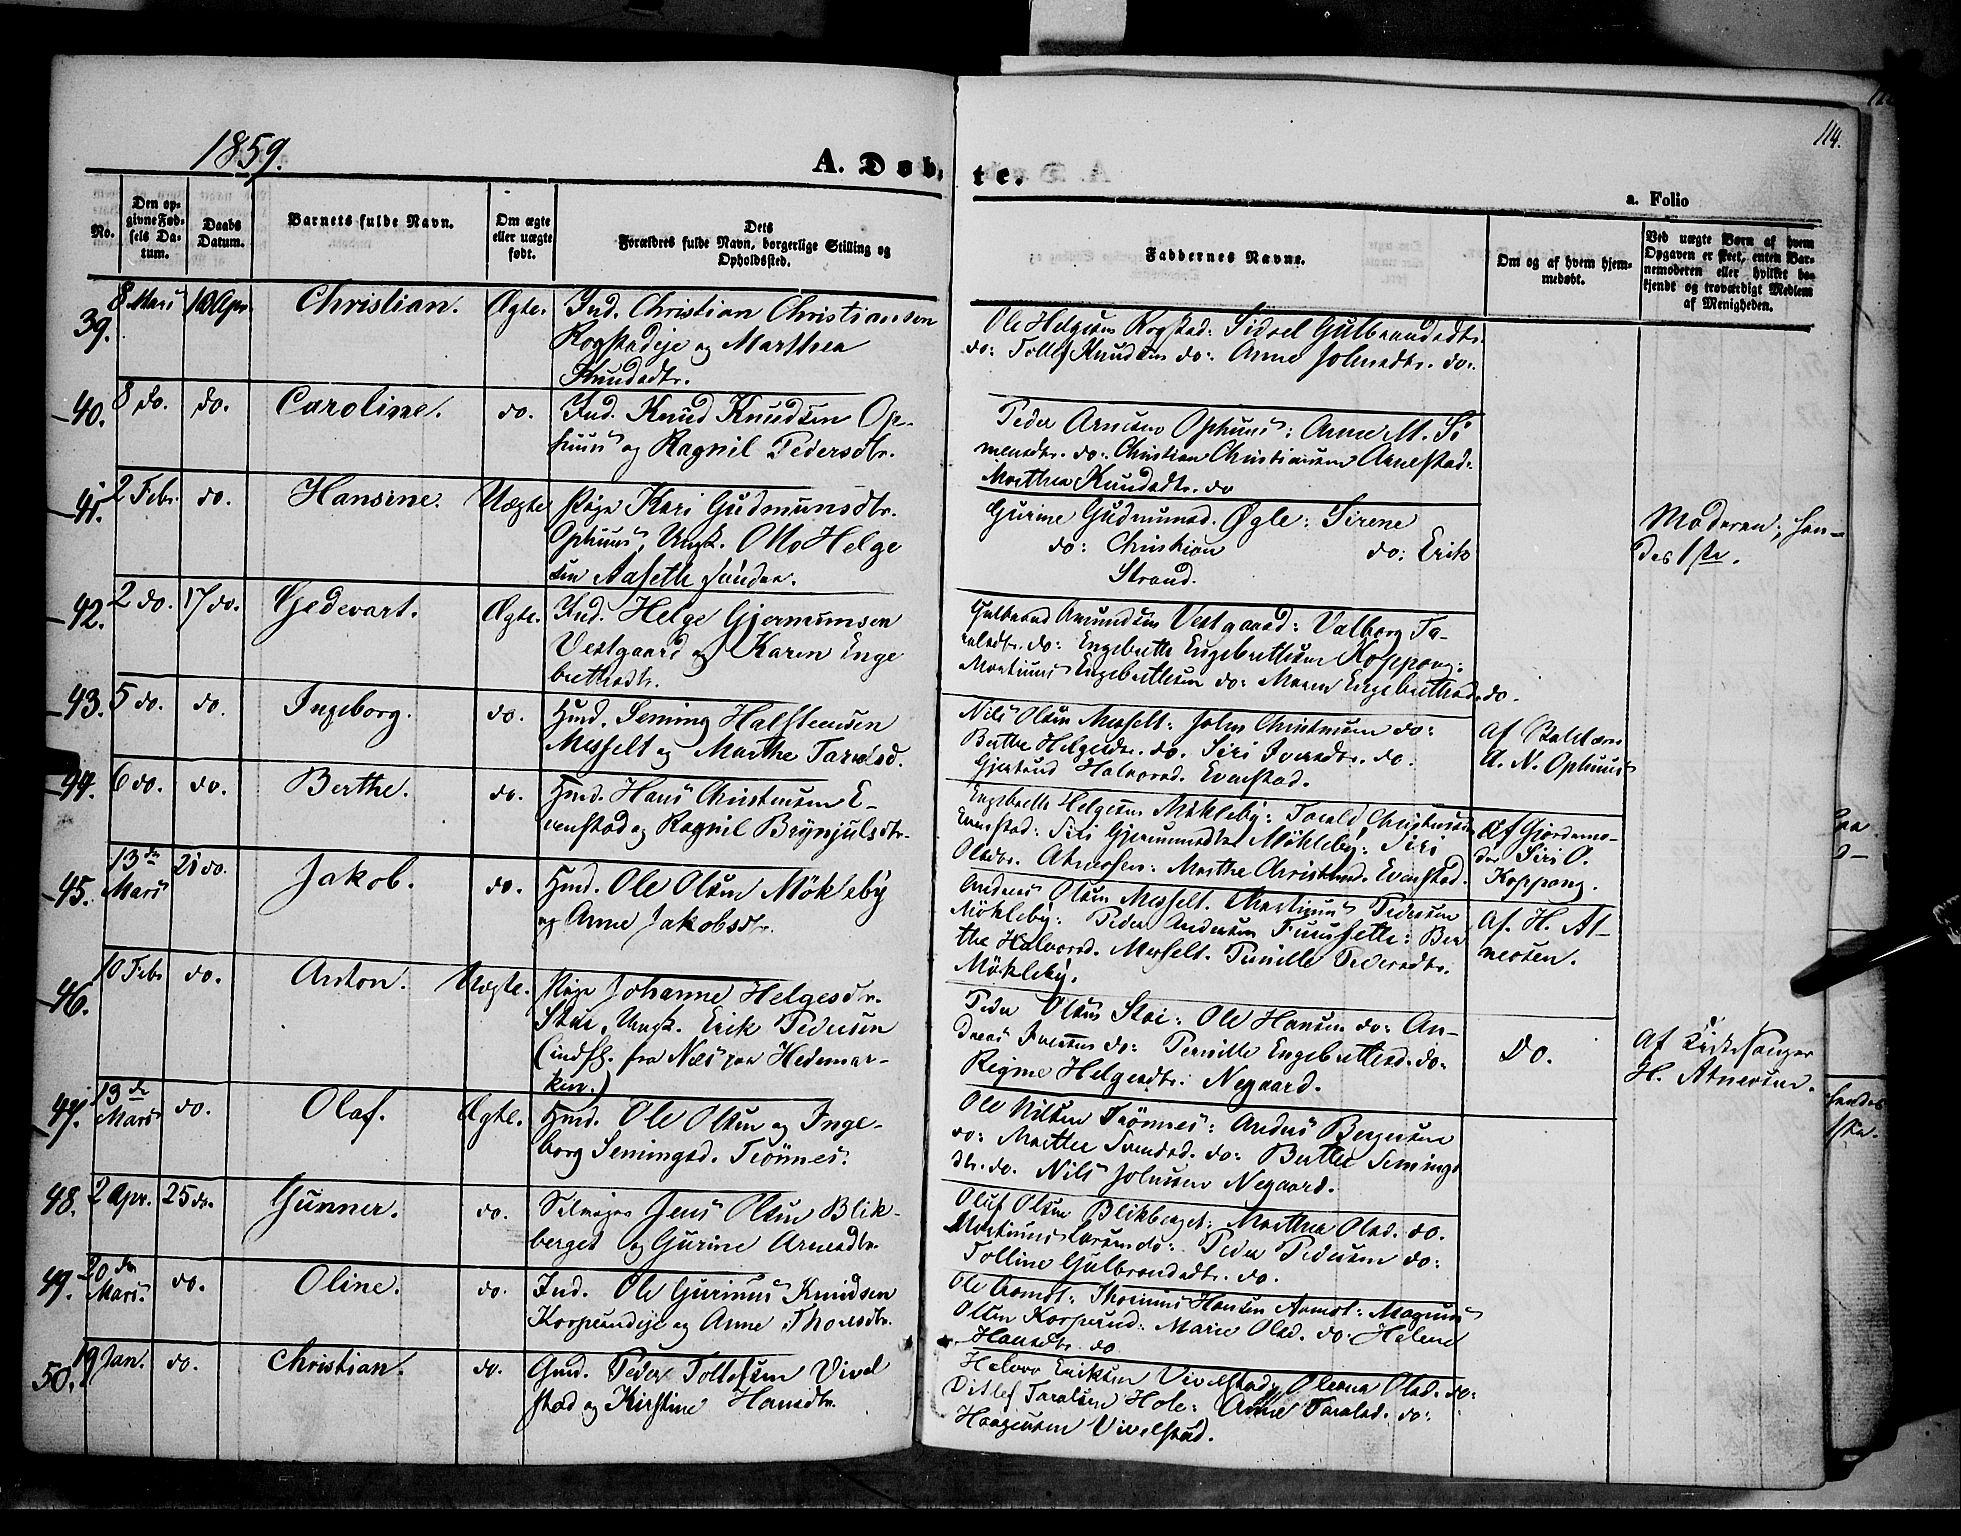 1859.
A. Døb-
te.
114.
a. Folio
No.
Den op-
givne Fød-
sels Da-
tum.
Daabs
Datum.
Barnets fulde Navn.
Om ægte
eller uægte
født.
Dets
Forældres fulde Navn, borgerlige Stilling og
Opholdssted.
Faddernes Navne.
Om og af hvem hjem-
medøbt.
Ved uægte Børn af hvem
Opgaven er skeet, enten Bar-
nemoderen eller hvilket be-
kjendt og troværdigt Medlem
af Menigheden.
39.
8 Mars
10 Apr.
Christian.
Ægte.
Ind. Christian Christiansen
Rogstadeje og Marthea
Knudsdtr.
Ole Helgesen Rogstad: Sidsel Gulbrandsdtr.
do: Tollef Knudsen do: Anne Johnsdtr. do.
40.
8 do.
do.
Caroline.
do.
Ind. Knud Knudsen Op-
huus og Ragnil Pedersdtr.
Peder Arnesen Ophuus: Anne M. Si
mensdtr. do: Christian Christiansen Arnestad:
Marthea Knudsdtr. do
41.
2 Febr.
do.
Hansine.
Uægte
Pige Kari Gudmunsdtr.
Ophuus, Ungk. Otto Helge
sen Aaseth søndre.
Gurine Gudmunsd. Øgle: Sirene
do: Christian do: Erik
Strand.
Moderen; hen-
des 1ste.
42.
2 do.
17 do.
Gedevart.
Ægte.
Ind. Helge Gjermunsen
Vestgaard og Karen Enge
brethsdtr.
Gulbrand Amundsen Vestgaard: Valborg Ta-
ralsdtr. do: Engebreth Engebrethsen Koppang:
Martinus Engebrethsen do: Maren Engebrethsd. do.
43.
5 do.
do.
Ingeborg.
do.
Hmd. Seming Halsteensen
Messelt og Marthe Taralsd.
Nils Olsen Messelt: John Christensen do:
Berthe Helgesdtr. do. Siri Iversdtr. do.
Gjertrud Halvorsd. Evenstad.
Af
A. N. Ophuus
44.
6 do.
do.
Berthe.
do.
Hmd. Hans Christensen E-
venstad og Ragnil Brynjulsdtr.
Engebreth Helgesen Møkleby: Tarald Christensen
Evenstad: Siri Gjermundsdtr. Møkleby: Siri
Olsdtr. Atneosen: Marthe Christensd. Evenstad.
Af Gjordemo-
der Siri O.
Koppang.
45.
13de
Mars
21 do.
Jakob.
do.
Hmd. Ole Olsen Møkleby
og Anne Jakobsdtr.
Anders Olsen Messelt. Martinus Pedersen
Møkleby: Peder Andersen Fuusette: Ber
the Halvorsd. Messelt. Pernille Pedersdtr.
Møkleby.
Af. H. At-
neosen.
46.
10 Febr
do.
Anton.
Uægte.
Pige Johanne Helgesdtr.
Stai, Ungk. Erik Pedersen
(indfl. fra Næs paa Hedemar-
ken.)
Peder Olsen Stai: Ole Hansen do: An-
dreas Iversen do: Pernille Engebrethsd. do.
Regine Helgesdtr. Negaard.
Do.
Af Kirkesanger
H. Atneosen.
47.
13de
Mars
do.
Olaf.
Ægte.
Hmd. Ole Olsen og Inge-
borg Semingsd. Trønnes.
Ole Nilsen Trønnes: Anders Bergersen
do: Marthe Svendsd. do: Berthe Semings
dtr. do. Nils Johnsen Negaard.
48.
2 Apr.
25 do.
Gunner.
do.
Selveier Jens Olsen Blik-
berget og Gurine Arnesdtr.
Oluf Olsen Blikberget: Marthea Olsd. do.
Martinus Larsen do: Peder Pedersen do:
Tolline Gulbrandsdtr. do.
49.
20de
Mars.
do.
Oline.
do.
Ind. Ole Gurinus Knudsen
Korpeundeje og Anne Thoresdtr.
Ole Arndt: Thorinus Hansen Arndt: Magnus
Olsen Korpeund: Marie Olsd. do: Helene
Hansdtr. do
50.
19 Jan.
do.
Christian.
do.
Gmd. Peder Tollefsen Vivel
stad og Kirstine Hansdtr.
Halvor Eriksen Vivelstad: Oleana Olsd. do:
Ditlef Taralsen Hole: Anne Taralsd. do:
Haagensen Vivelstad.